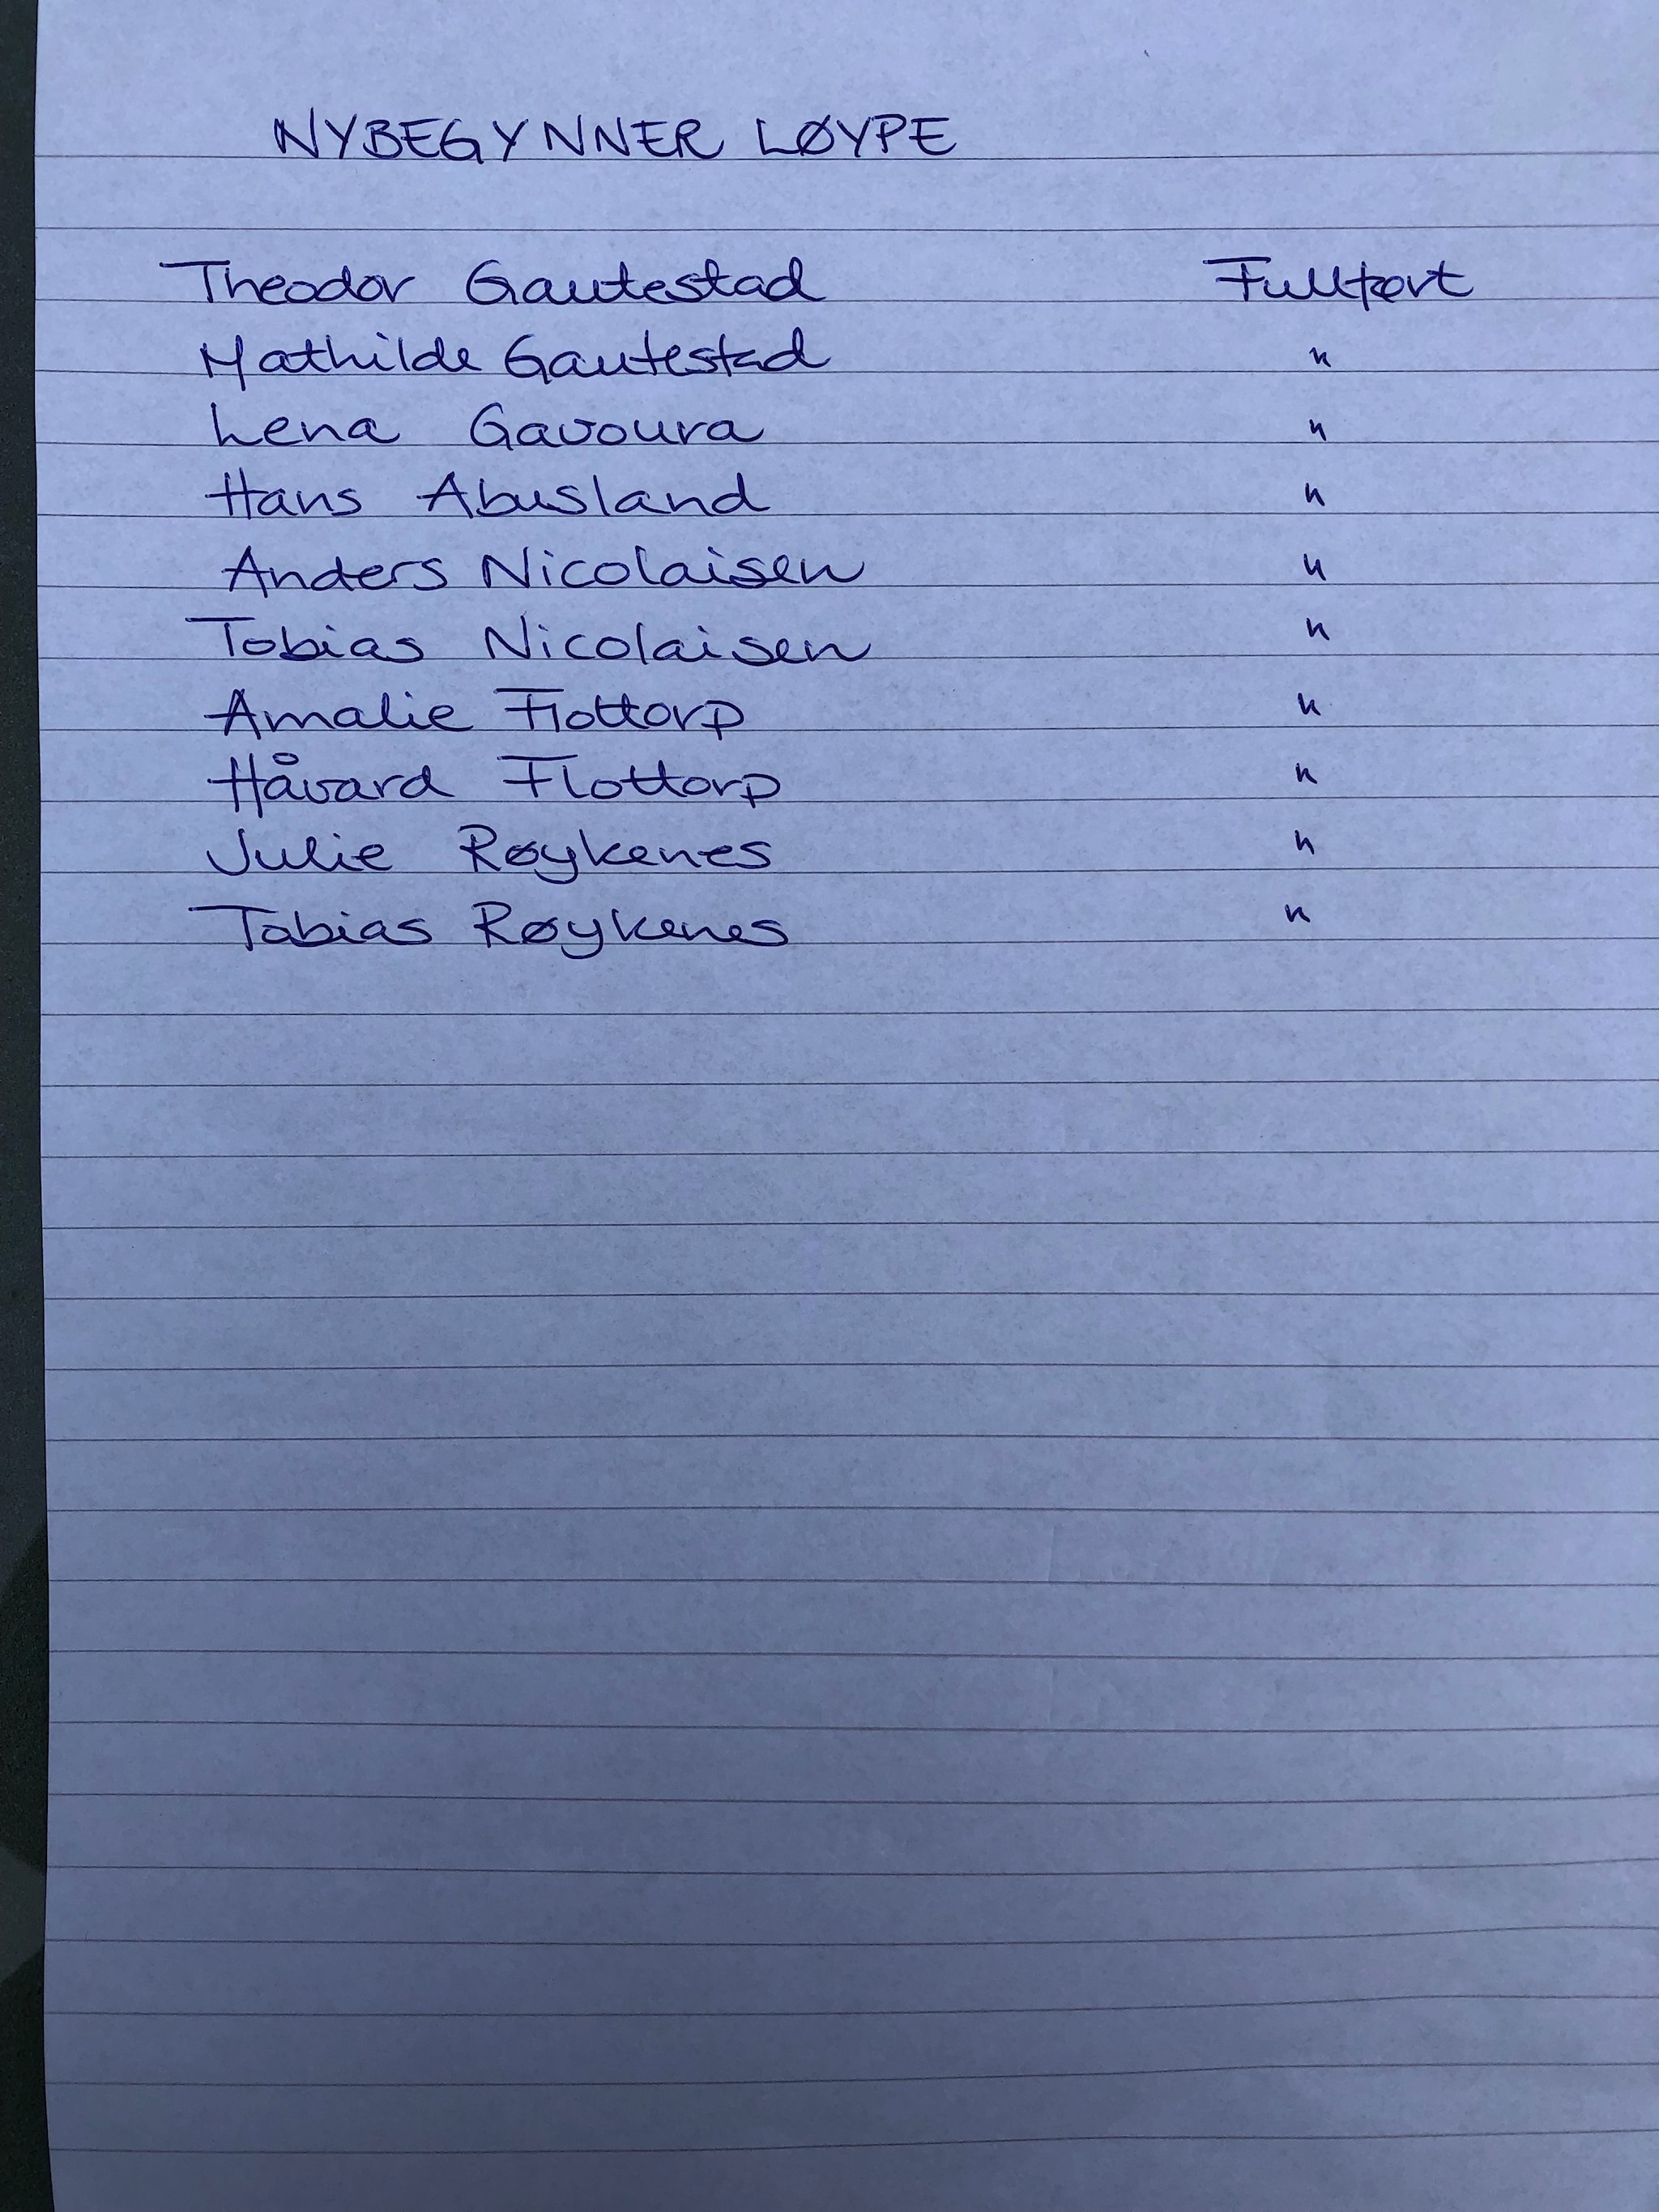 NYBEGYNNER LØYPE
Theodor Gautestad Fullført
Mathilde Gautestad "
Lena Gavoura "
Hans Abusland "
Anders Nicolaisen "
Tobias Nicolaisen "
Amalie Flottorp "
Håvard Flottorp "
Julie Røykenes "
Tobias Røykenes "